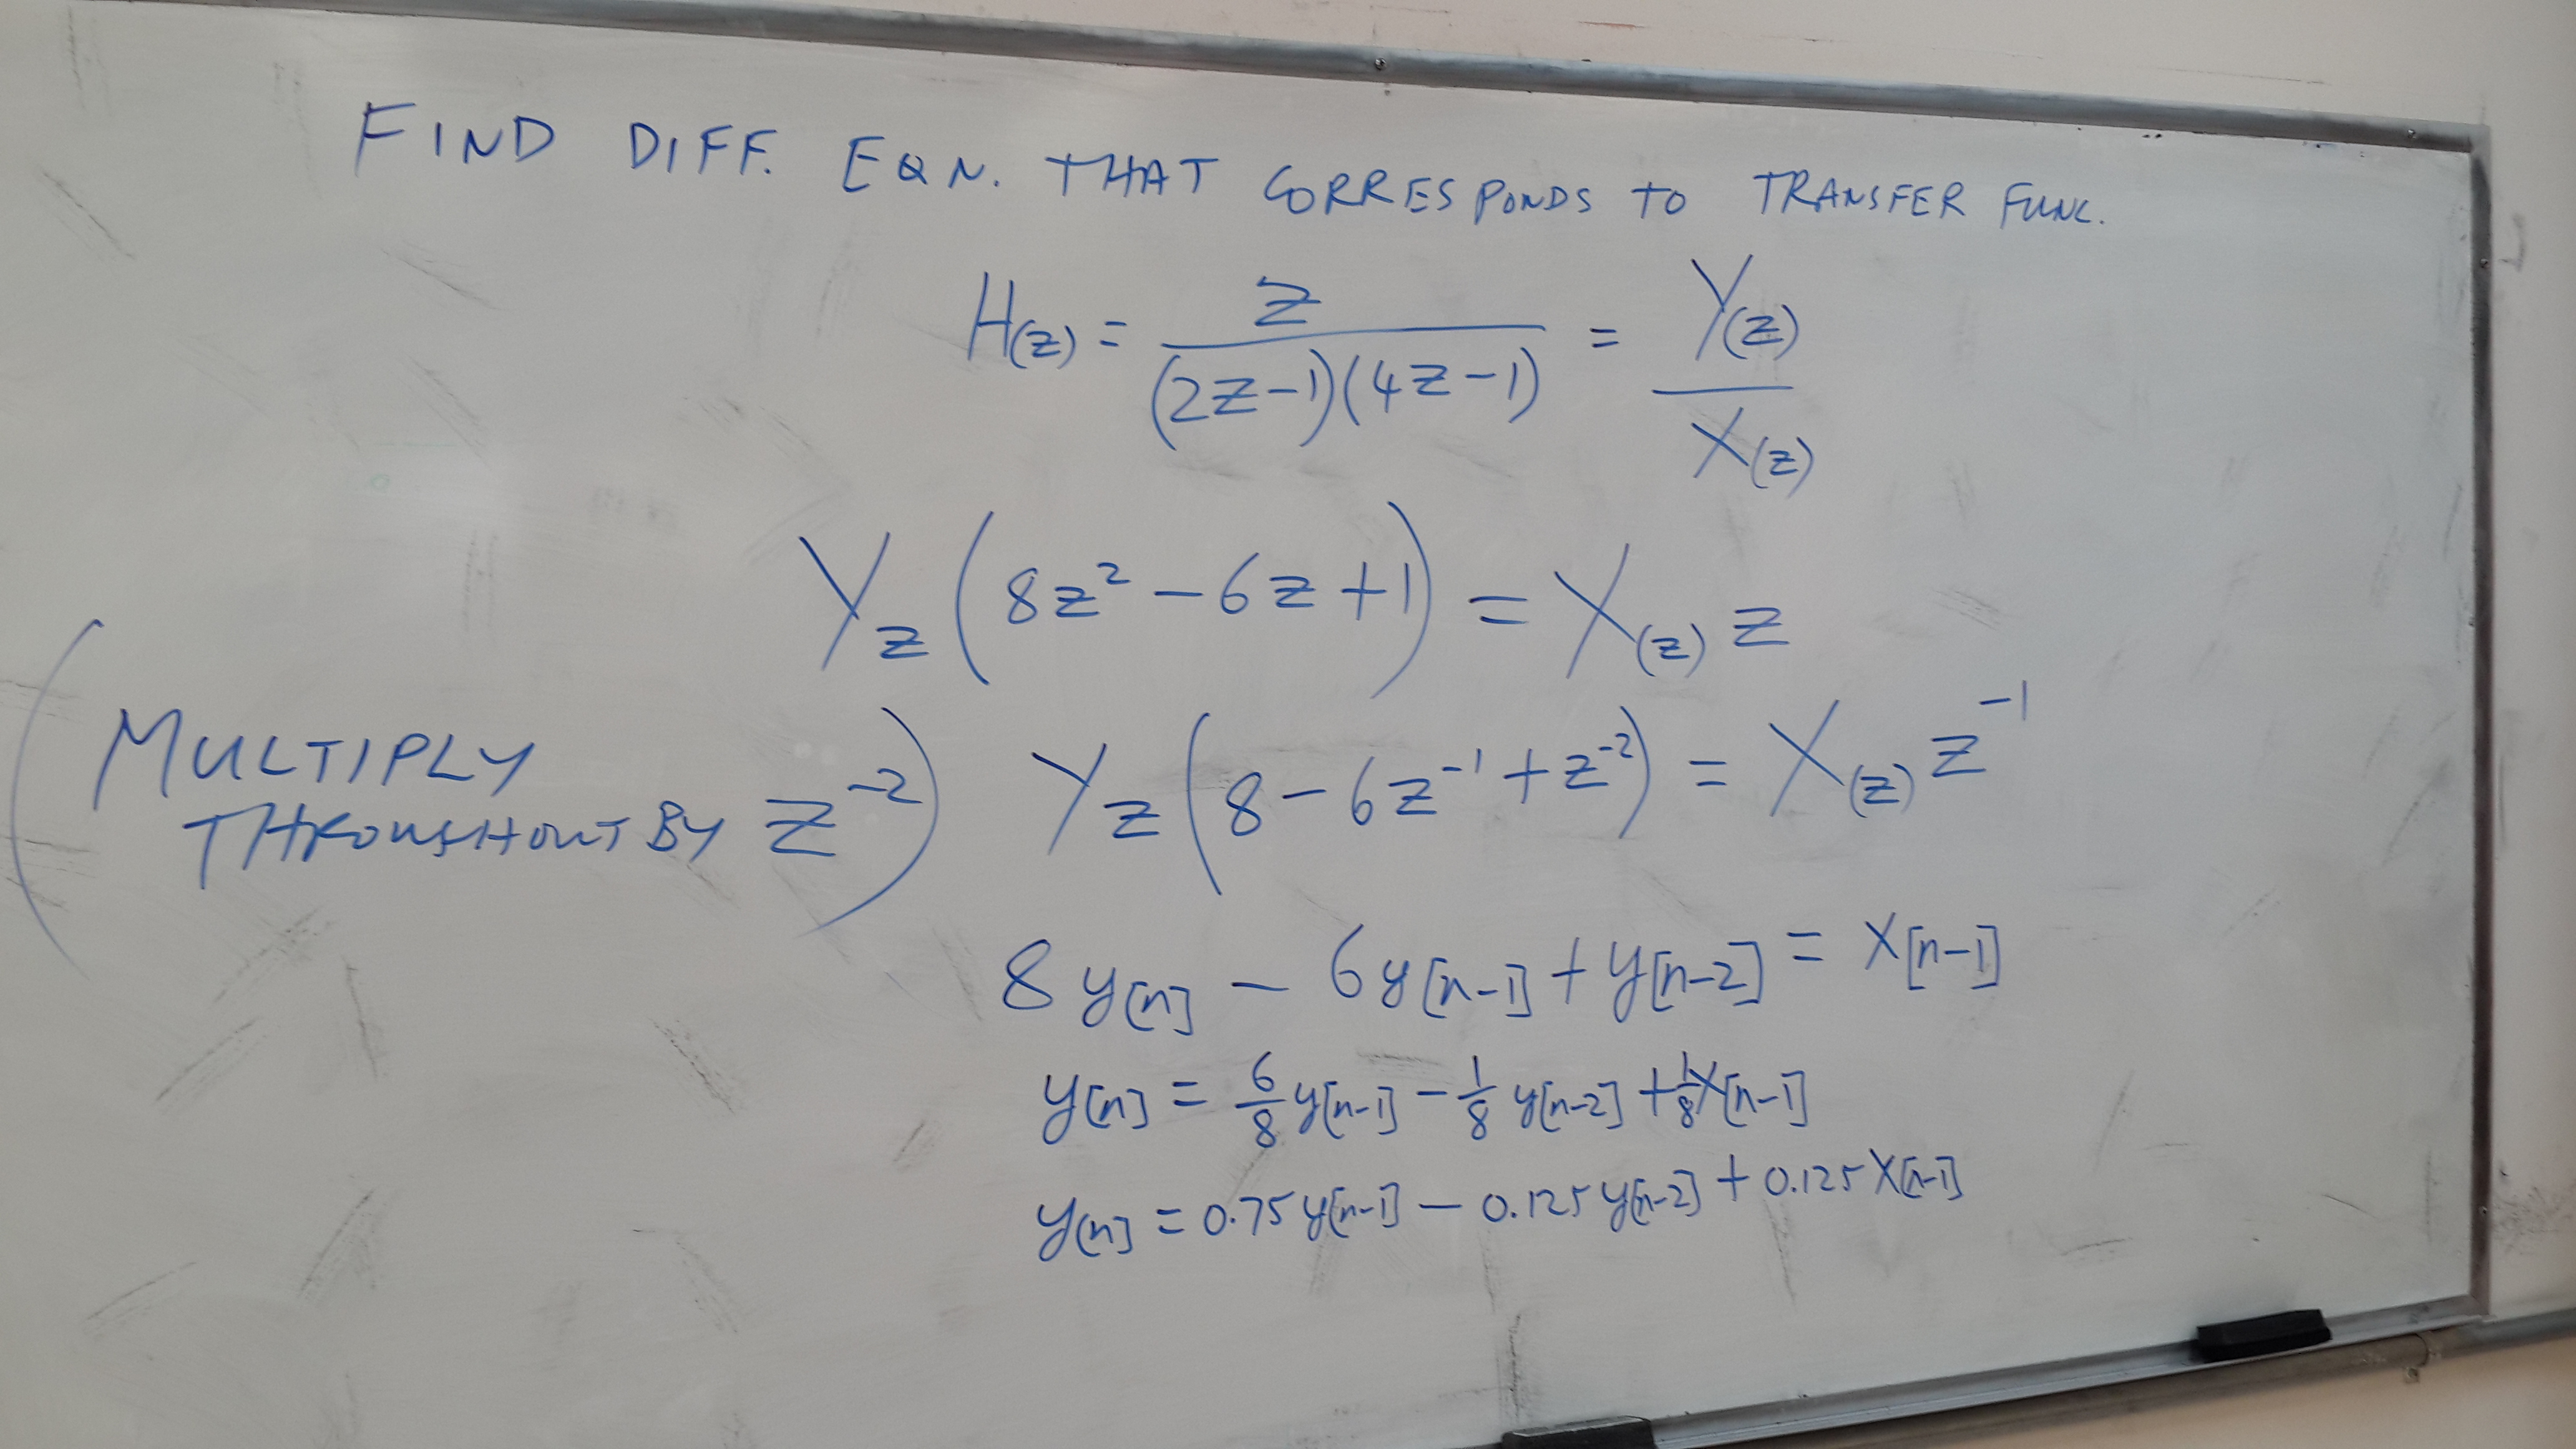 FIND DIFF. EQN. THAT CORRESPONDS TO TRANSFER FUNC.
H(z) = z / (2z-1)(4z-1) = Y(z) / X(z)
Yz (8z² - 6z + 1) = X(z) z
(MULTIPLY THROUGHOUT BY z⁻²) Yz (8 - 6z⁻¹ + z⁻²) = X(z) z⁻¹
8 y[n] - 6y[n-1] + y[n-2] = x[n-1]
y[n] = 6/8 y[n-1] - 1/8 y[n-2] + 1/8 x[n-1]
y[n] = 0.75 y[n-1] - 0.125 y[n-2] + 0.125 x[n-1]